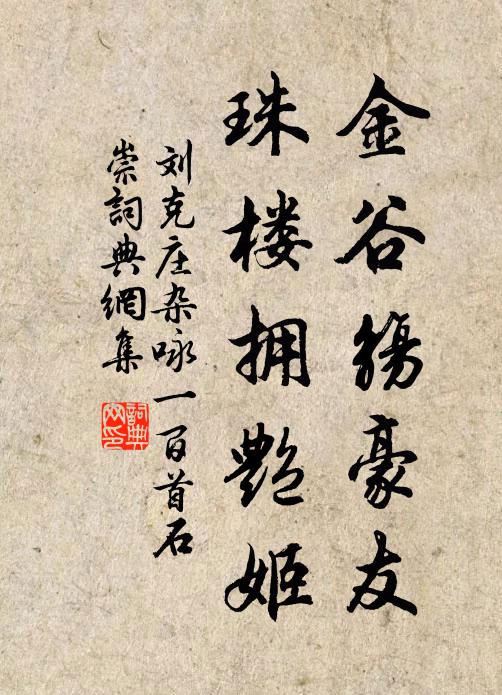 金谷觞豪友
珠楼拥艳姬
刘克庄杂咏一百首石
崇词典网集
詞典
网印